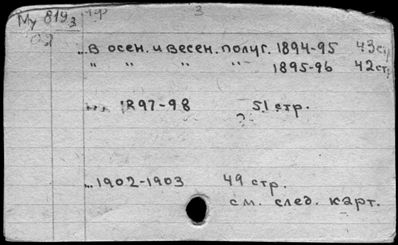 Му 819/3 3
...в осен. и весен. полуг. 1894-95 43 ст
" " " " 1895-96 42 ст.
... 1897-98 51 стр.
?
...1902-1903 49 стр.
см. след. карт.